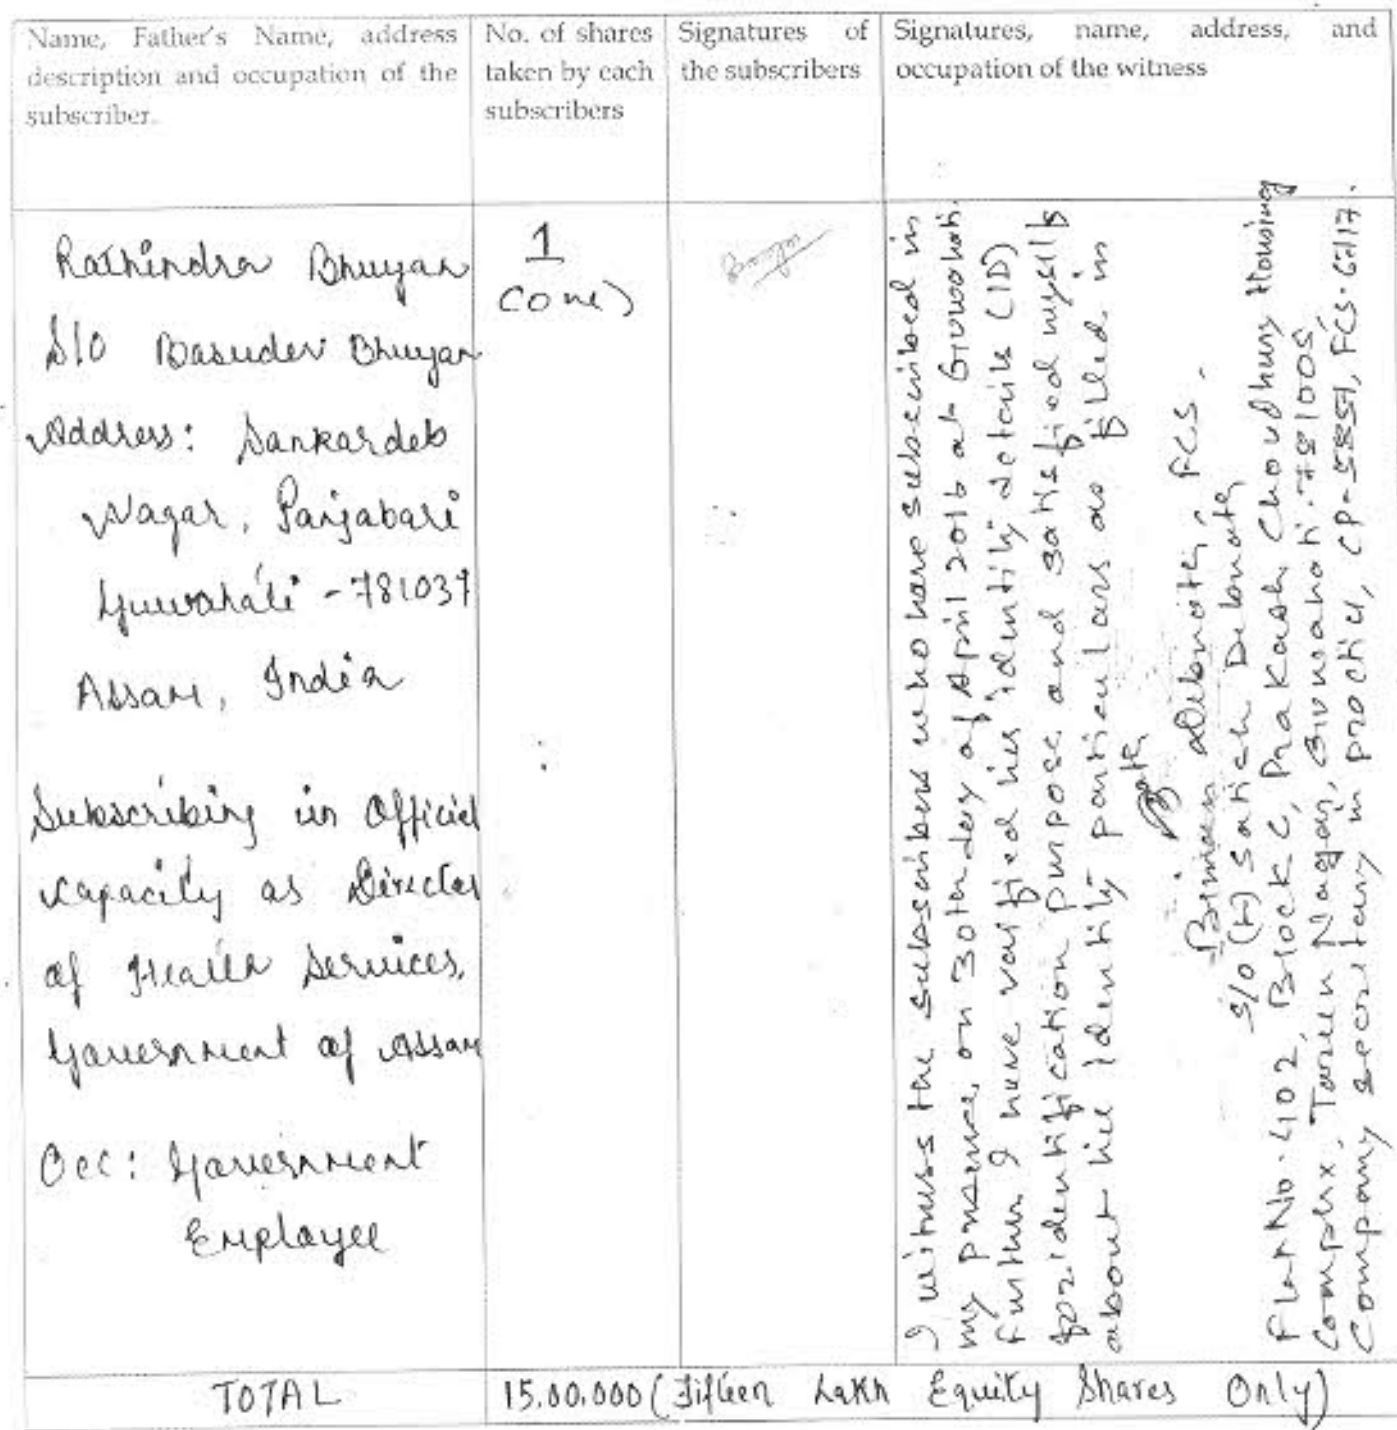 Name, Father's Name, address
description and occupation of the
subscriber.
No. of shares
taken by each
subscribers
Signatures of
the subscribers
Signatures, name, address, and
occupation of the witness
Rathindra Bhuyan
S/O Basudev Bhuyan
Address: Sankardeb
Nagar, Panjabari
Guwahati - 781037
Assam, India
Subscribing in Official
Capacity as Director
of Health Services,
Government of Assam
Occ: Government
Employee
1
(One)
I witness the subscribers who have subscribed in
my presence, on 30th day of April 2016 at Guwahati.
Further I have verified his identity details (ID)
for identification purpose and satisfied myself
about his Identity particulars as filled in
Biman Debnath, FCS.
S/o (H) Satish Debnath
Flat No. 402, Block C, Prakash Choudhury Housing
Complex, Tarun Nagar, Guwahati-781005
Company secretary in practice, CP-5857, FCS-6717.
TOTAL
15,00,000 (Fifteen Lakh Equity Shares Only)